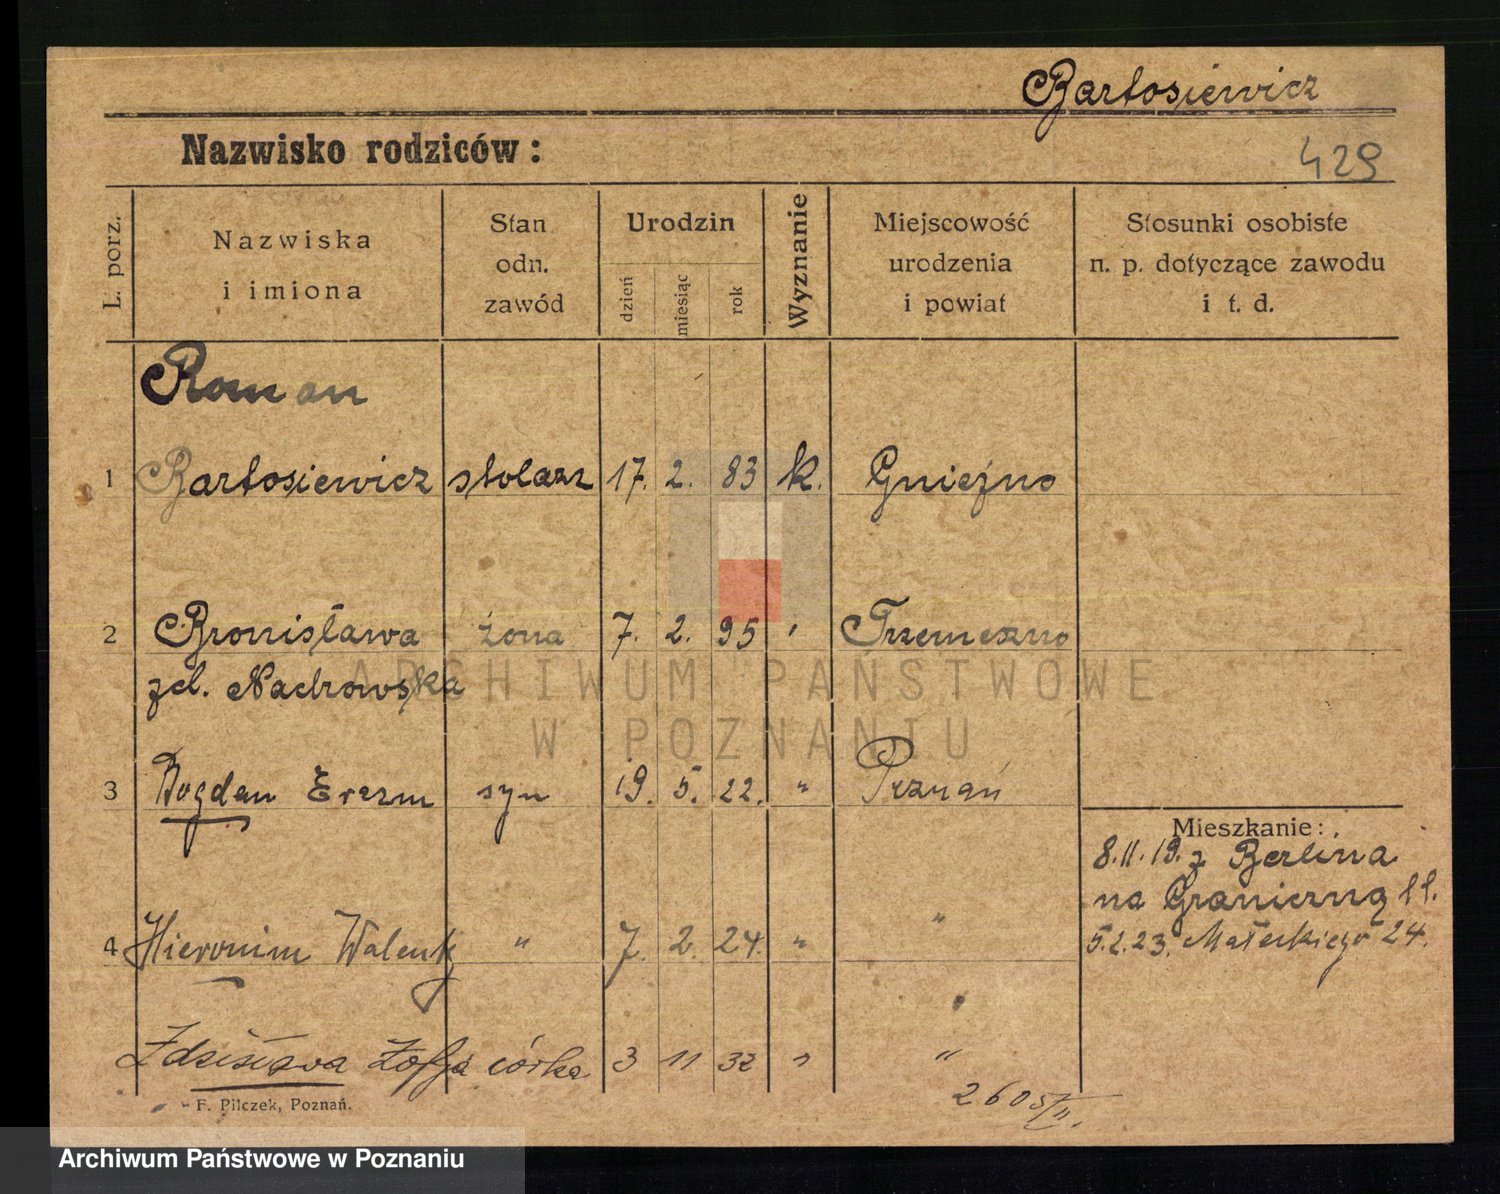 Bartosiewicz
Nazwisko rodziców:
429
L. porz.
Nazwiska
i imiona
Stan
odn.
zawód
Urodzin
dzień
miesiąc
rok
Wyznanie
Miejscowość
urodzenia
i powiat
Stosunki osobiste
n. p. dotyczące zawodu
i t. d.
Roman
1 Bartosiewicz stolarz 17. 2. 83 k. Gniezno
2 Bronisława żona 7. 2. 95 " Trzemeszno
zd. Nachowska
3 Bogdan Erazm syn 19. 5. 22. " Poznań
Mieszkanie:
8.11.19. z Berlina
na Graniczną 11.
4 Hieronim Walenty " 7. 2. 24. " "
5.2.23. Małeckiego 24.
Zdzisława Zofja córka 3 11 32 " "
F. Pilczek, Poznań.
2605/II.
ARCHIWUM PAŃSTWOWE
W POZNANIU
Archiwum Państwowe w Poznaniu